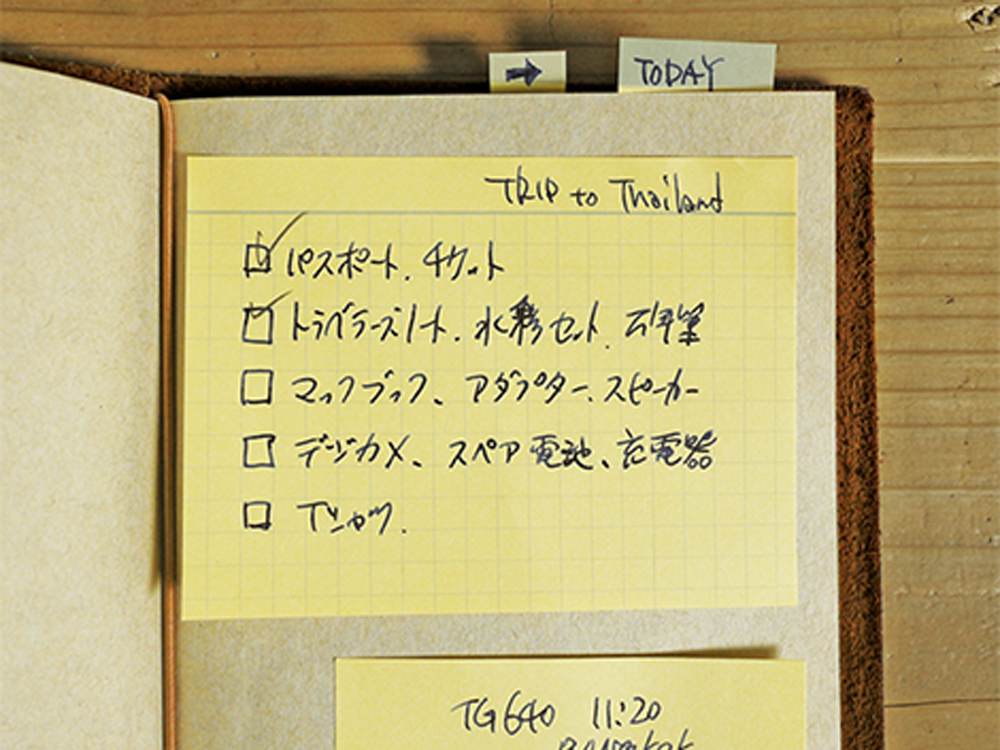 → TODAY
TRIP to Thailand
パスポート、チケット
トラベラーズノート、水彩セット、鉛筆
マックブック、アダプター、スピーカー
デジカメ、スペア電池、充電器
Tシャツ、
TG640 11:20